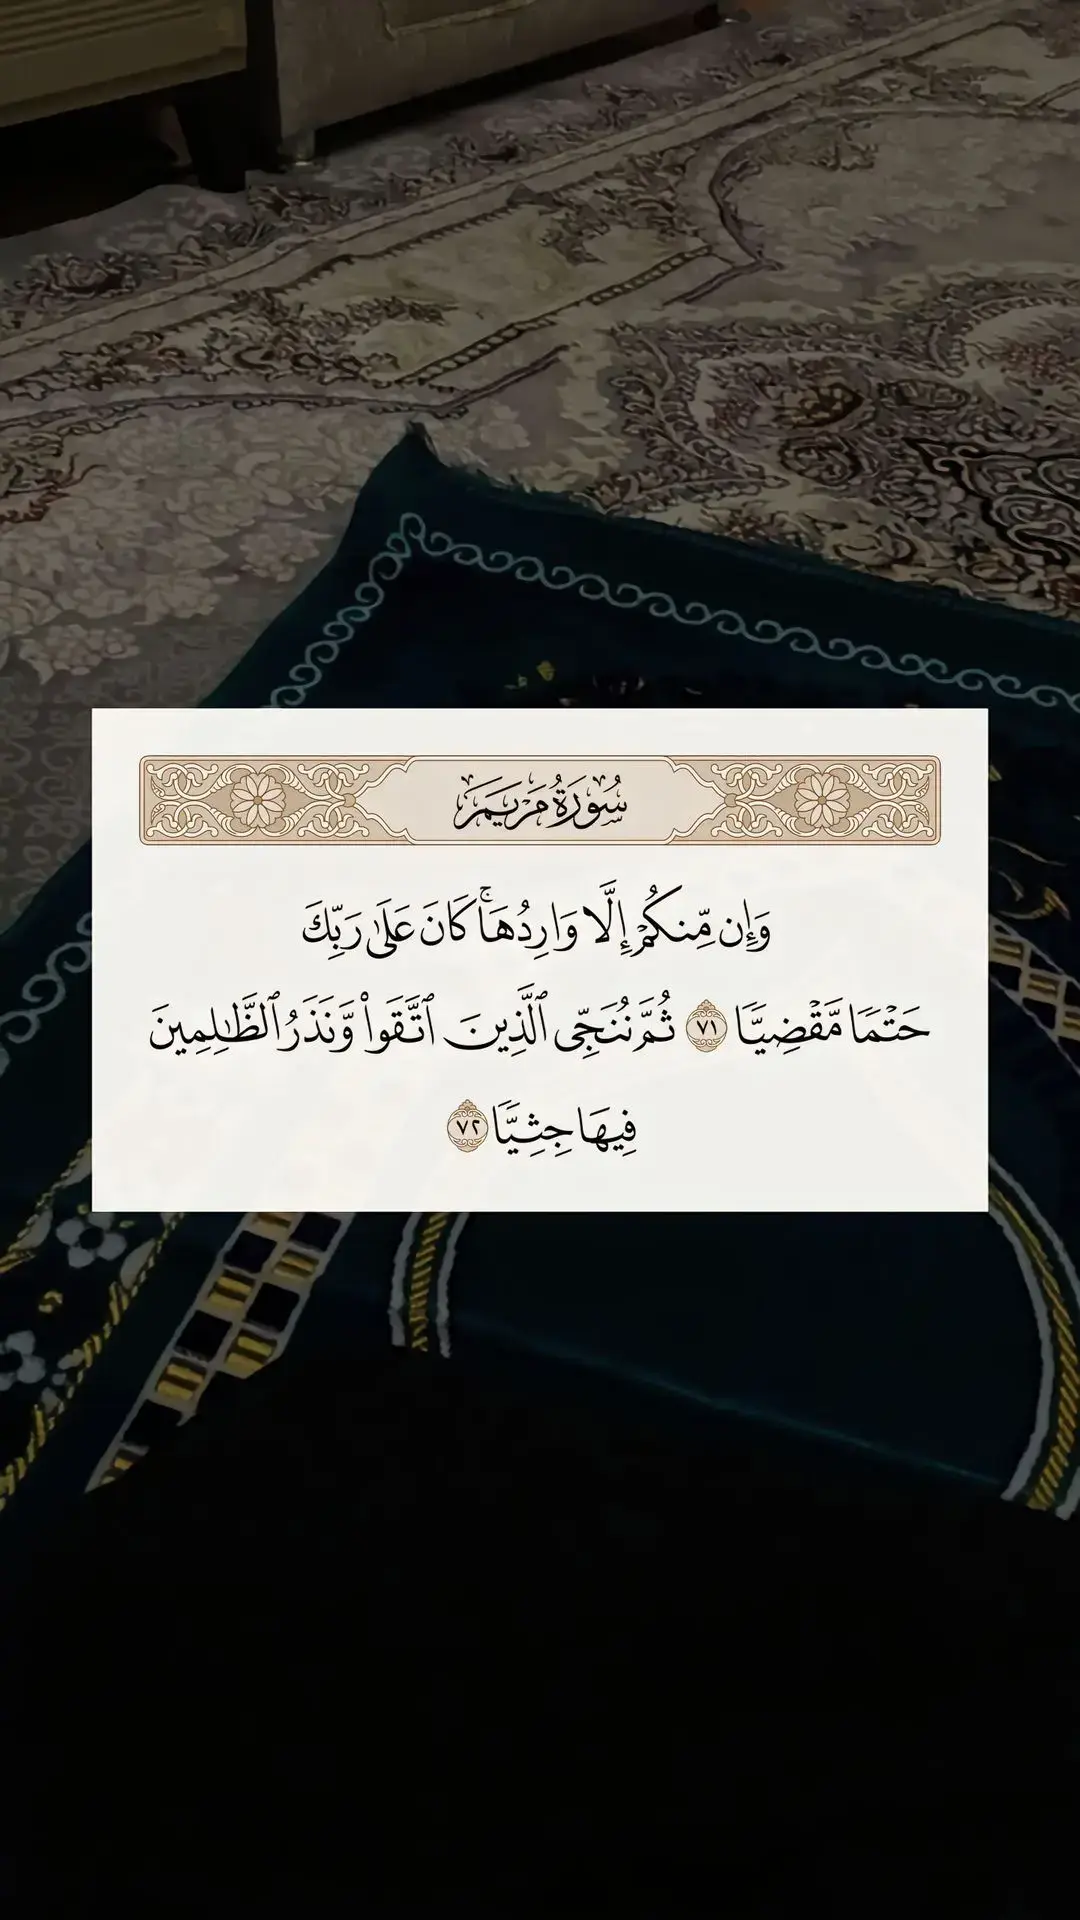 سُورَةُ مَرْيَمَ
وَإِن مِّنكُمْ إِلَّا وَارِدُهَاۚ كَانَ عَلَىٰ رَبِّكَ
حَتْمًا مَّقْضِيًّا ٧١ ثُمَّ نُنَجِّي ٱلَّذِينَ ٱتَّقَوا۟ وَّنَذَرُ ٱلظَّـٰلِمِينَ
فِيهَا جِثِيًّا ٧٢